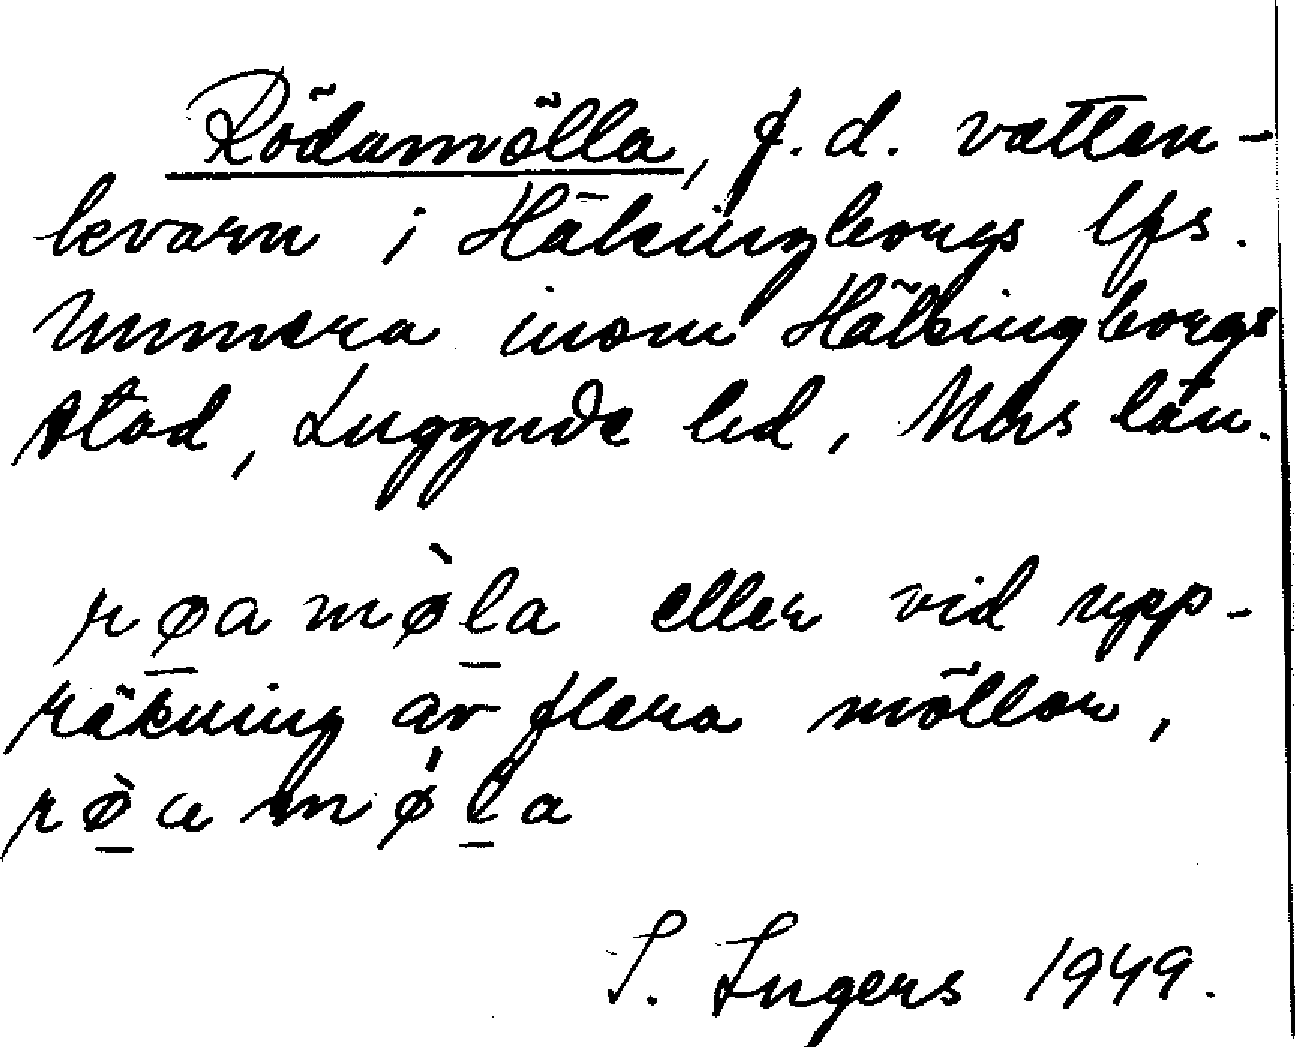 Rödamölla, f.d. vatten-
kvarn i Hälsingborgs lfs.
Numera inom Hälsingborgs
stad, Luggude hd, Mhs län.
rø̲amø̀l̲a eller vid upp-
räkning av flera möllor,
rø̲̀amǿl̲a
S. Ingers 1949.